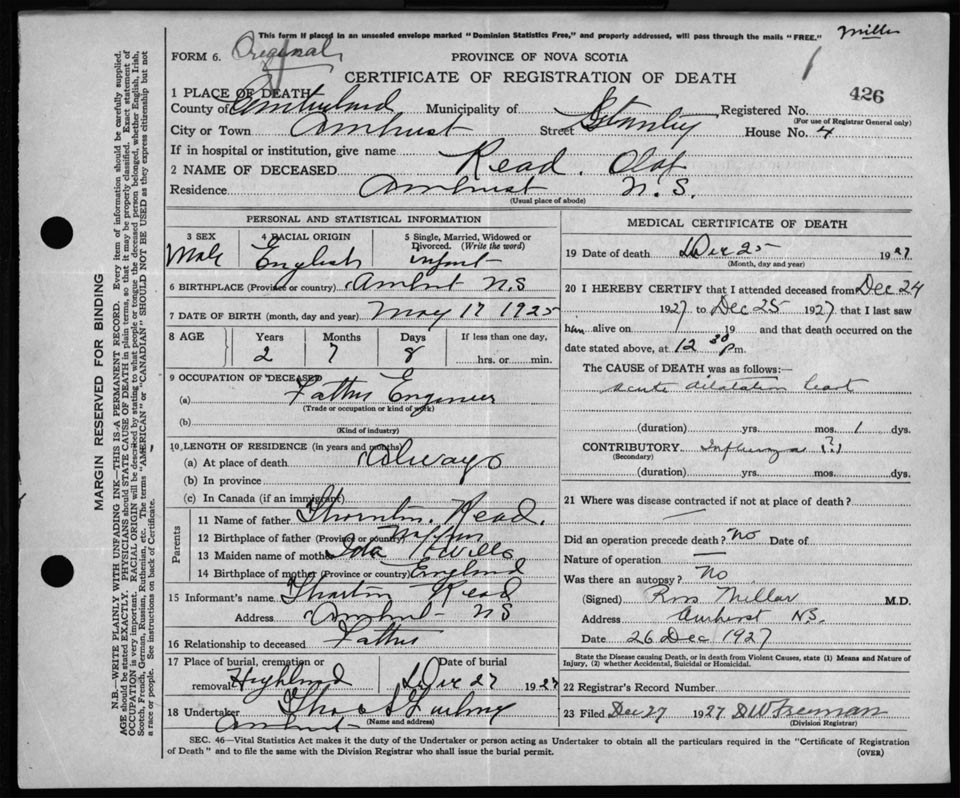 This form if placed in an unsealed envelope marked "Dominion Statistics Free," and properly addressed, will pass through the mails "FREE."
FORM 6. Original
PROVINCE OF NOVA SCOTIA
CERTIFICATE OF REGISTRATION OF DEATH
1 PLACE OF DEATH
426
County of Cumberland Municipality of Registered No.
(For use of Registrar General only)
City or Town Amherst Street Stanley House No. 4
If in hospital or institution, give name
2 NAME OF DECEASED Read. Olaf
Residence Amherst N.S.
(Usual place of abode)
PERSONAL AND STATISTICAL INFORMATION
3 SEX Male
4 RACIAL ORIGIN English
5 Single, Married, Widowed or Divorced. (Write the word) infant
6 BIRTHPLACE (Province or country) Amherst N.S
7 DATE OF BIRTH (month, day and year) May 17 1925
8 AGE Years Months Days If less than one day,
2 7 8 hrs. or min.
9 OCCUPATION OF DECEASED
(a) Father Engineer
(Trade or occupation or kind of work)
(b)
(Kind of industry)
10 LENGTH OF RESIDENCE (in years and months)
(a) At place of death Always
(b) In province
(c) In Canada (if an immigrant)
Parents
11 Name of father Read.
12 Birthplace of father (Province or country)
13 Maiden name of mother Ida
14 Birthplace of mother (Province or country) England
15 Informant's name Read
Address Amherst NS
16 Relationship to deceased Father
17 Place of burial, cremation or removal Highland
Date of burial Dec 27 1927
18 Undertaker
(Name and address)
Amherst
MEDICAL CERTIFICATE OF DEATH
19 Date of death Dec 25 1927
(Month, day and year)
20 I HEREBY CERTIFY that I attended deceased from Dec 24
1927 to Dec 25 1927 that I last saw
him alive on 19 and that death occurred on
date stated above, at 12 30 pm.
The CAUSE of DEATH was as follows:—
acute dilatation heart
(duration) yrs. mos. 1 dys.
CONTRIBUTORY Influenza (?)
(Secondary)
(duration) yrs. mos. dys.
21 Where was disease contracted if not at place of death?
Did an operation precede death? No Date of
Nature of operation
Was there an autopsy? No
(Signed) Ross Millar M.D.
Address Amherst N.S.
Date 26 Dec 1927
State the Disease causing Death, or in death from Violent Causes, state (1) Means and Nature of Injury, (2) whether Accidental, Suicidal or Homicidal.
22 Registrar's Record Number
23 Filed Dec 27 1927 DW Freeman
(Division Registrar)
SEC. 46—Vital Statistics Act makes it the duty of the Undertaker or person acting as Undertaker to obtain all the particulars required in the "Certificate of Registration
of Death" and to file the same with the Division Registrar who shall issue the burial permit.
(OVER)
MARGIN RESERVED FOR BINDING
N.B.—WRITE PLAINLY WITH UNFADING INK—THIS IS A PERMANENT RECORD. Every item of information should be carefully supplied.
AGE should be stated EXACTLY. PHYSICIANS should STATE CAUSE OF DEATH in plain terms, so that it may be properly classified. Exact statement of
OCCUPATION is very important. RACIAL ORIGIN will be described by stating to what people or tongue the deceased person belonged, whether English, Irish,
Scotch, French, German, Russian, Ruthenian, etc. The terms "AMERICAN" or "CANADIAN" SHOULD NOT BE USED as they express citizenship but not
a race or people. See instructions on back of Certificate.